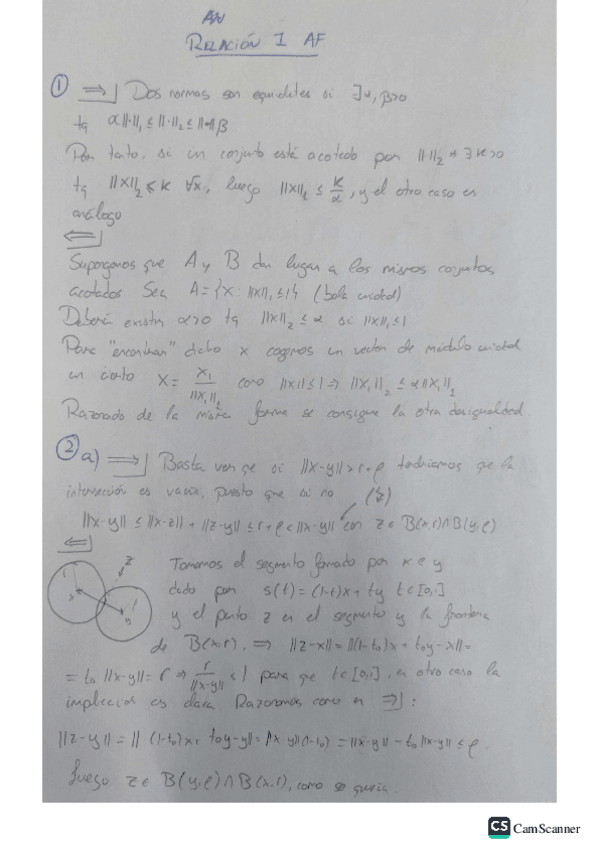 AN
RELACIÓN 1 AF
① ⇒] Dos normas son equivalentes si ∃α, β>0
tq α||·||₁ ≤ ||·||₂ ≤ ||·||₁β
Por tanto, si un conjunto está acotado por ||·||₂ ⇒ ∃K>0
tq ||x||₂ ≤ K ∀x, luego ||x||₁ ≤ K/α, y el otro caso es
análogo
⇐]
Supongamos que A y B dan lugar a los mismos conjuntos
acotados Sea A = {x: ||x||₁ ≤ 1} (bola unidad)
Deberá existir α>0 tq ||x||₂ ≤ α si ||x||₁ ≤ 1
Para "encontrar" dicho x cogemos un vector de módulo unidad
un cierto x = x₁/||x₁||₁ como ||x|| ≤ 1 ⇒ ||x₁||₂ ≤ α||x₁||₁
Razonado de la misma forma se consigue la otra desigualdad.
② a) ⇒] Basta ver que si ||x-y|| > r+ρ tendríamos que la
intersección es vacía, puesto que si no
||x-y|| ≤ ||x-z|| + ||z-y|| ≤ r+ρ < ||x-y|| con z∈B(x,r)∩B(y,ρ)
⇐]
z
x
y
Tomemos el segmento formado por x e y
dado por s(t) = (1-t)x + ty t∈[0,1]
y el punto z en el segmento y la frontera
de B(x,r), ⇒ ||z-x|| = ||(1-t₀)x + t₀y - x|| =
= t₀||x-y|| = r ⇒ r/||x-y|| ≤ 1 para que t∈[0,1], en otro caso la
implicación es clara Razonamos como en ⇒]:
||z-y|| = ||(1-t₀)x + t₀y-y|| = ||x-y||(1-t₀) = ||x-y|| - t₀||x-y|| ≤ ρ.
Luego z∈B(y,ρ)∩B(x,r), como se quería.
CS CamScanner